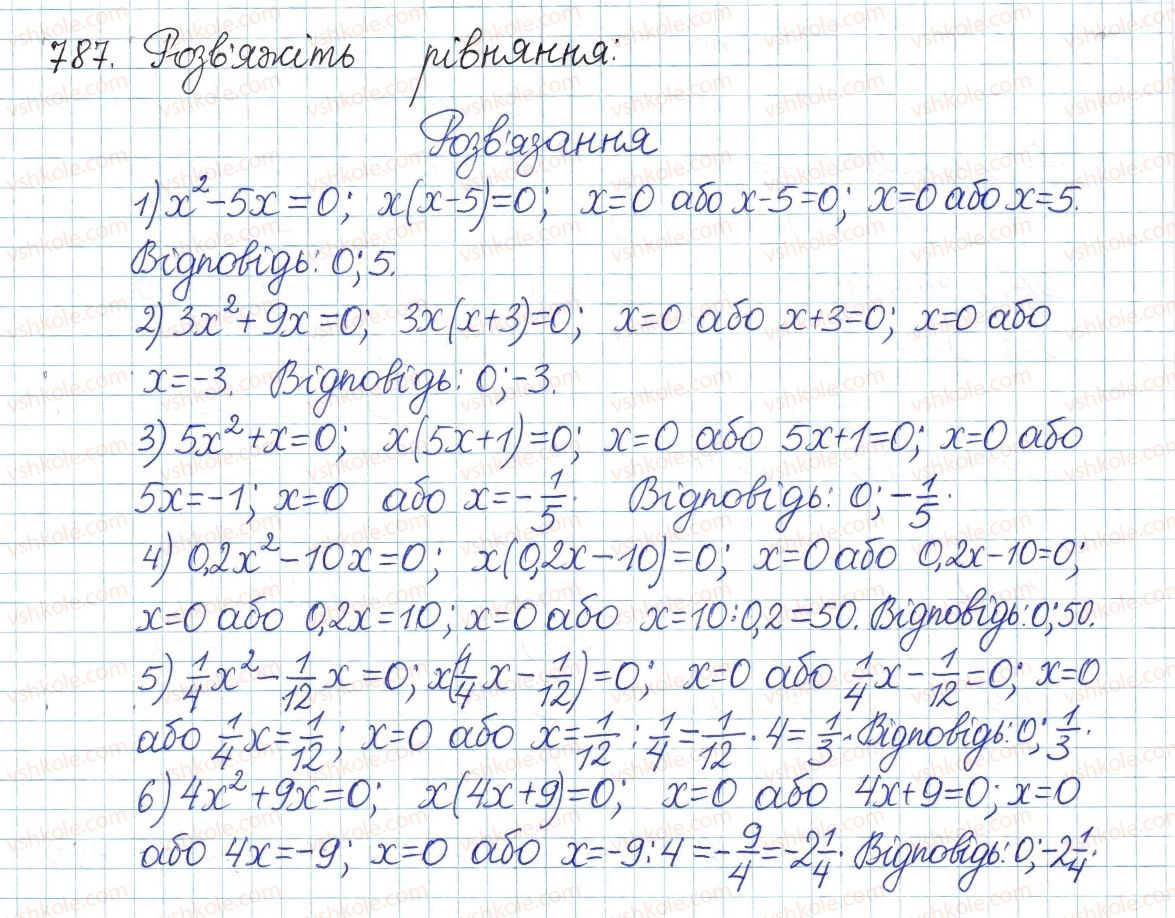 787. Розв'яжіть рівняння:
Розв'язання
1) x²-5x=0; x(x-5)=0; x=0 або x-5=0; x=0 або x=5.
Відповідь: 0; 5.
2) 3x²+9x=0; 3x(x+3)=0; x=0 або x+3=0; x=0 або
x=-3. Відповідь: 0; -3.
3) 5x²+x=0; x(5x+1)=0; x=0 або 5x+1=0; x=0 або
5x=-1; x=0 або x=-1/5. Відповідь: 0; -1/5.
4) 0,2x²-10x=0; x(0,2x-10)=0; x=0 або 0,2x-10=0;
x=0 або 0,2x=10; x=0 або x=10:0,2=50. Відповідь: 0; 50.
5) 1/4x²-1/12x=0; x(1/4x-1/12)=0; x=0 або 1/4x-1/12=0; x=0
або 1/4x=1/12; x=0 або x=1/12:1/4=1/12·4=1/3. Відповідь: 0; 1/3.
6) 4x²+9x=0; x(4x+9)=0; x=0 або 4x+9=0; x=0
або 4x=-9; x=0 або x=-9:4=-9/4=-2 1/4. Відповідь: 0; -2 1/4.